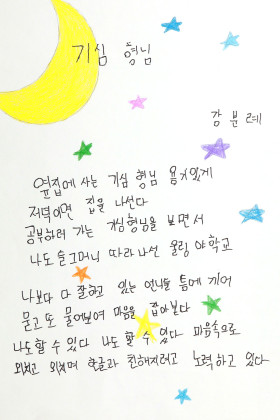 기심 형님
강분례
옆집에 사는 기심 형님 용기있게
저녁이면 집을 나선다
공부하러 가는 기심형님을 보면서
나도 슬그머니 따라나선 울림 야학교
나보다 다 잘하고 있는 언니들 틈에 끼어
묻고 또 물어보며 마음을 잡아본다
나도 할 수 있다 나도 할 수 있다 마음속으로
외치고 외치며 한글과 친해지려고 노력하고 있다